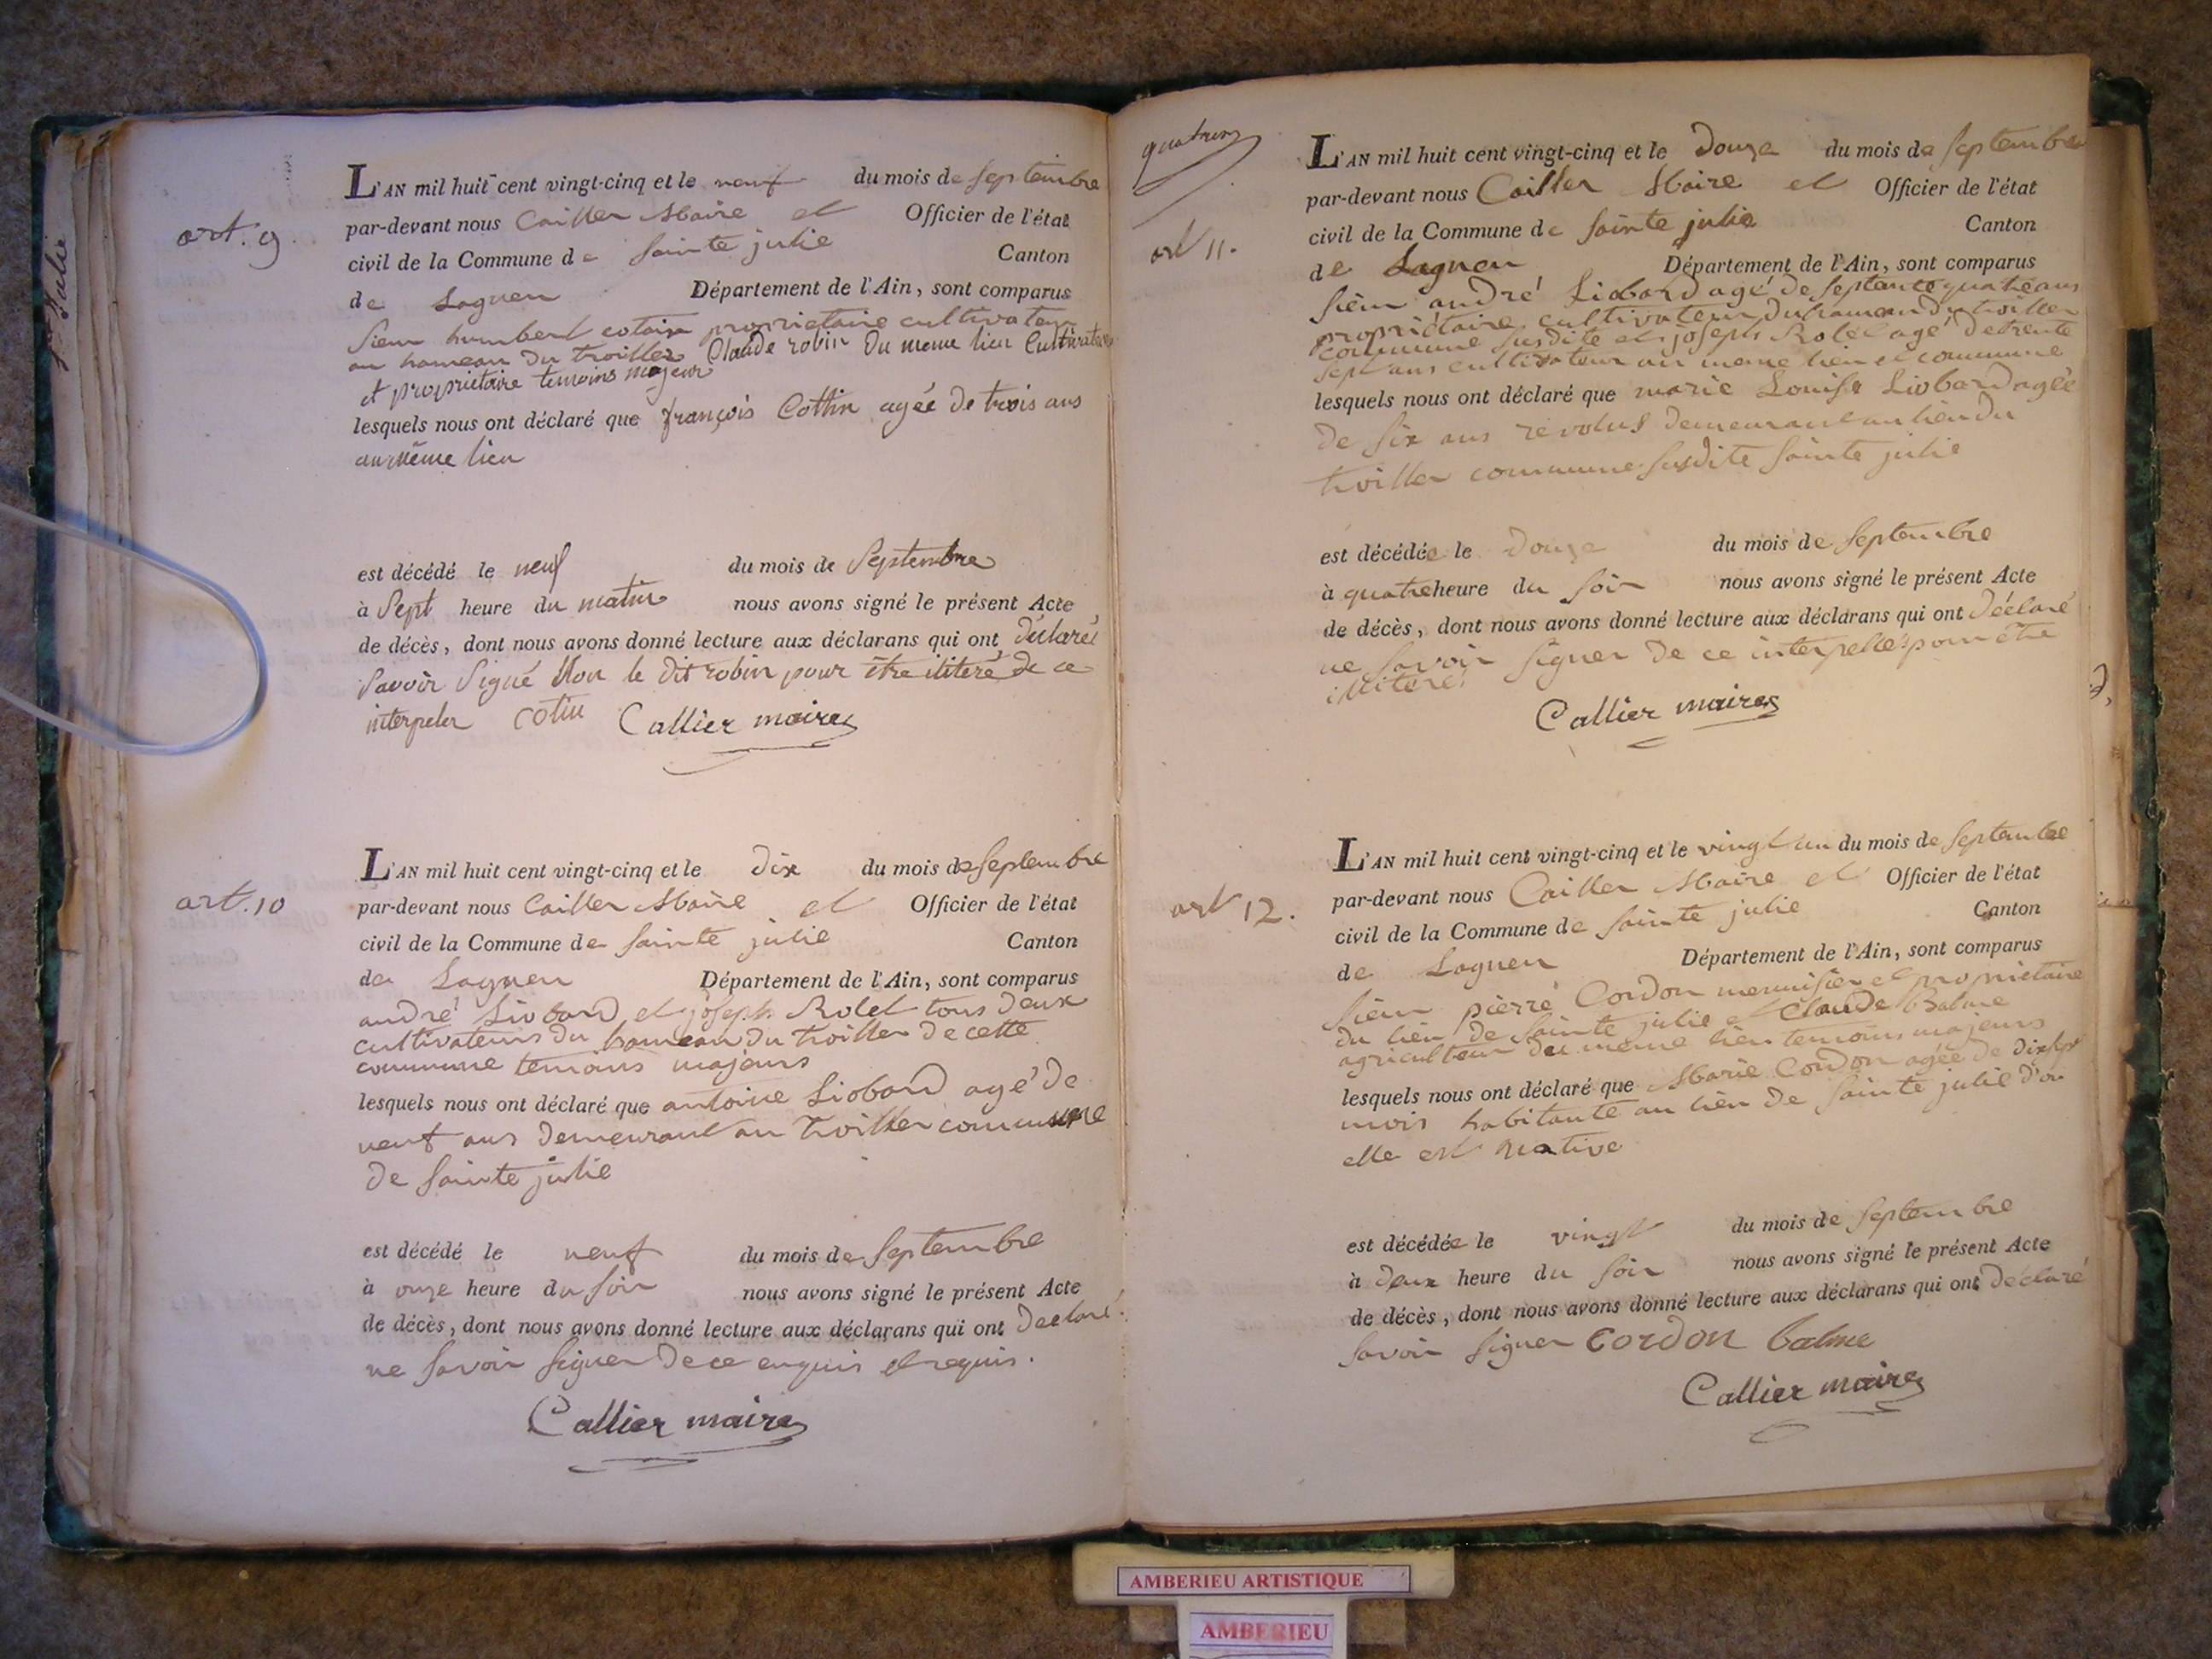 Ste Julie
art. 9
L'AN mil huit cent vingt-cinq et le neuf du mois de septembre
par-devant nous Cailler Maire et Officier de l'état
civil de la Commune de sainte julie Canton
de Lagneu Département de l'Ain, sont comparus
sieur humbert cotain proprietaire cultivateur
au hameau du troiller Claude robin du meme lieu Cultivateur
et proprietaire temoins majeur
lesquels nous ont déclaré que françois Cottin agée de trois ans
au même lieu
est décédé le neuf du mois de Septembre
à Sept heure du matin nous avons signé le présent Acte
de décès, dont nous avons donné lecture aux déclarans qui ont déclaré
savoir signé Non le dit robin pour être iliteré de ce
interpeler cotin Callier maire
art. 10
L'AN mil huit cent vingt-cinq et le dix du mois de septembre
par-devant nous Cailler Maire et Officier de l'état
civil de la Commune de sainte julie Canton
de Lagneu Département de l'Ain, sont comparus
andré Liobard et joseph Rolet tous deux
cultivateurs du hameau du troiller de cette
commune temoins majeurs
lesquels nous ont déclaré que antoine Liobard agé de
neuf ans demeurant au troiller commune
de sainte julie
est décédé le neuf du mois de septembre
à onze heure du soir nous avons signé le présent Acte
de décès, dont nous avons donné lecture aux déclarans qui ont declaré
ne savoir signer de ce enquis et requis.
Callier maire
art 11.
L'AN mil huit cent vingt-cinq et le douze du mois de septembre
par-devant nous Cailler Maire et Officier de l'état
civil de la Commune de sainte julie Canton
de Lagneu Département de l'Ain, sont comparus
sieur andré Liobard agé de septante quatre ans
proprietaire cultivateur du hameau du troiller
commune susdite et joseph Rolet agé de trente
sept ans cultivateur au meme lieu et commune
lesquels nous ont déclaré que marie Louise Liobard agée
de six ans revolus demeurant au lieu du
troiller commune susdite sainte julie
est décédée le douze du mois de septembre
à quatre heure du soir nous avons signé le présent Acte
de décès, dont nous avons donné lecture aux déclarans qui ont déclaré
ne savoir signer de ce interpellés pour être
illiteré
Callier maire
art 12.
L'AN mil huit cent vingt-cinq et le vingt un du mois de septembre
par-devant nous Cailler Maire et Officier de l'état
civil de la Commune de sainte julie Canton
de Lagneu Département de l'Ain, sont comparus
sieur pierre Cordon menuisier et proprietaire
du lieu de sainte julie et Claude Balme
agriculteur du meme lieu temoins majeurs
lesquels nous ont déclaré que Marie Cordon agée de dix sept
mois habitante au lieu de sainte julie d'ou
elle est native
est décédée le vingt du mois de septembre
à deux heure du soir nous avons signé le présent Acte
de décès, dont nous avons donné lecture aux déclarans qui ont déclaré
savoir signer Cordon balme
Callier maire
AMBERIEU ARTISTIQUE
AMBERIEU